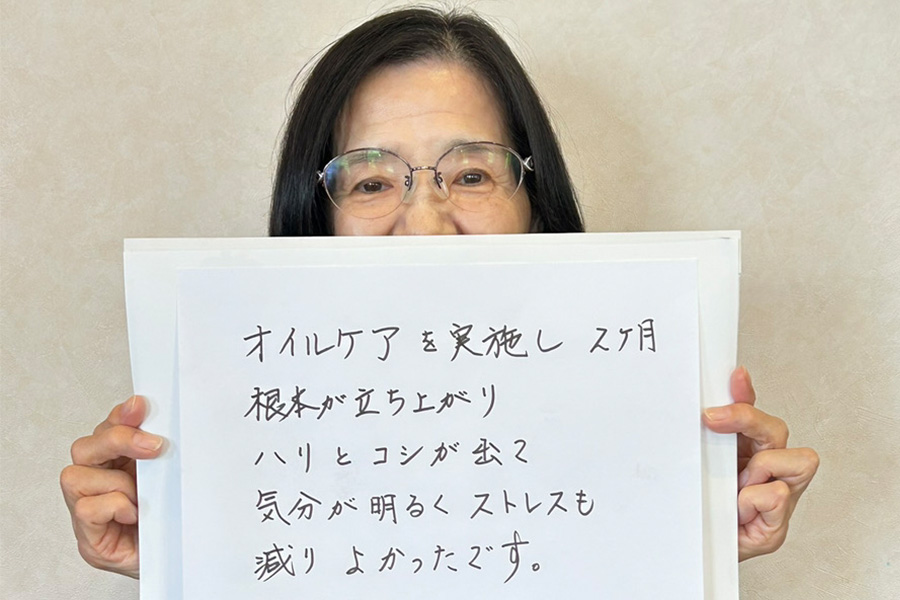 オイルケアを実施し 2ケ月
根本が立ち上がり
ハリとコシが出て
気分が明るくストレスも
減り よかったです。